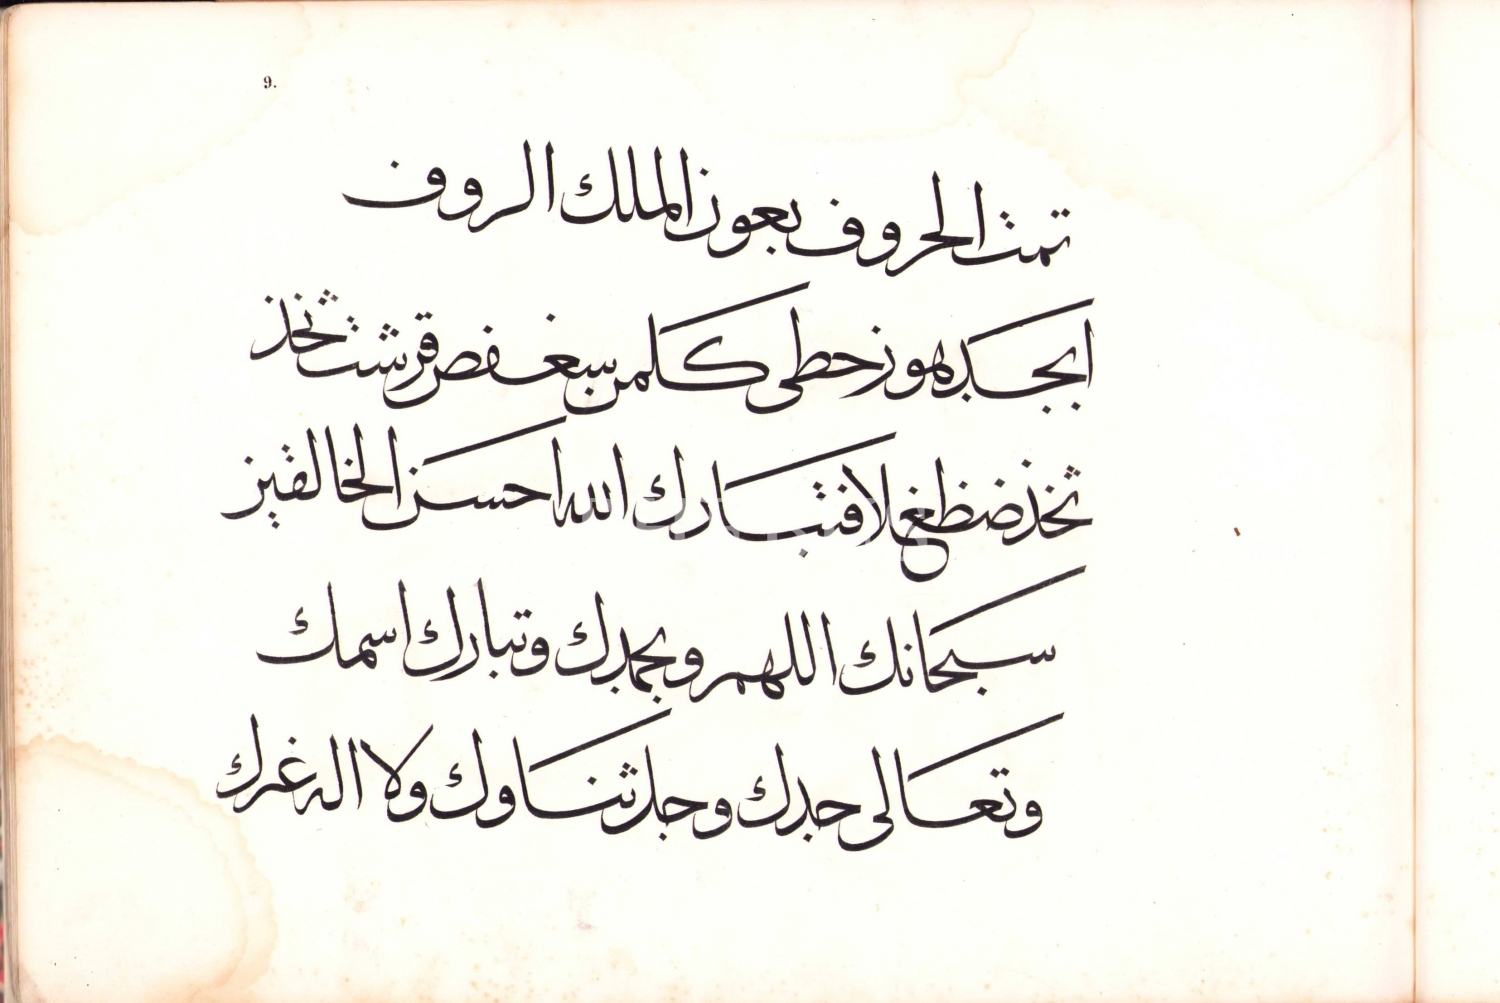 9.
تمت الحروف بعون الملك الروف
ابجد هوز حطى كلمن سعفص قرشت ثخذ
ثخذ ضظغلا فتبارك الله احسن الخالقين
سبحانك اللهم وبحمدك وتبارك اسمك
وتعالى جدك وجل ثناوك ولا اله غرك